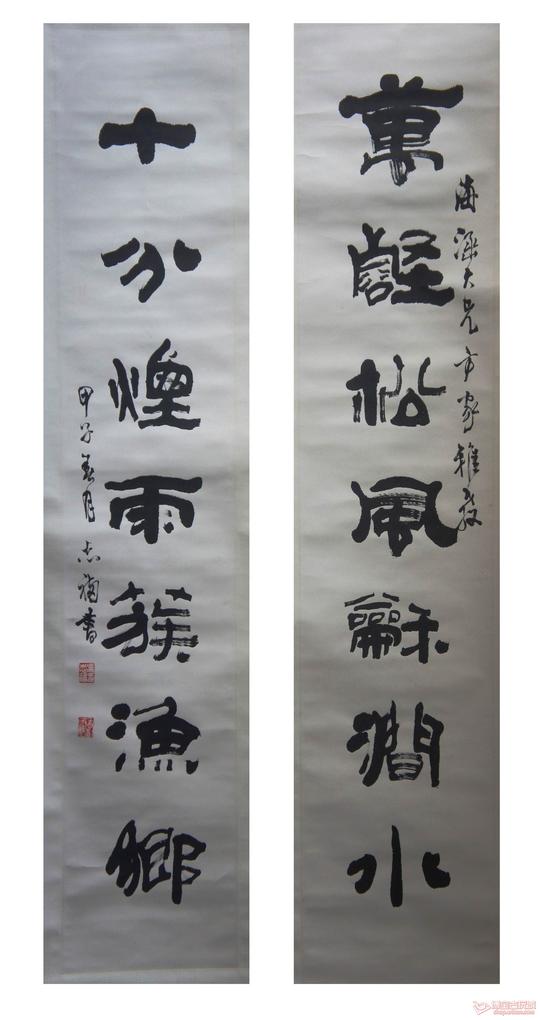 萬壑松風龢澗水
海深大兄方家雅教
十分煙雨簇漁鄉
甲子春月志福書